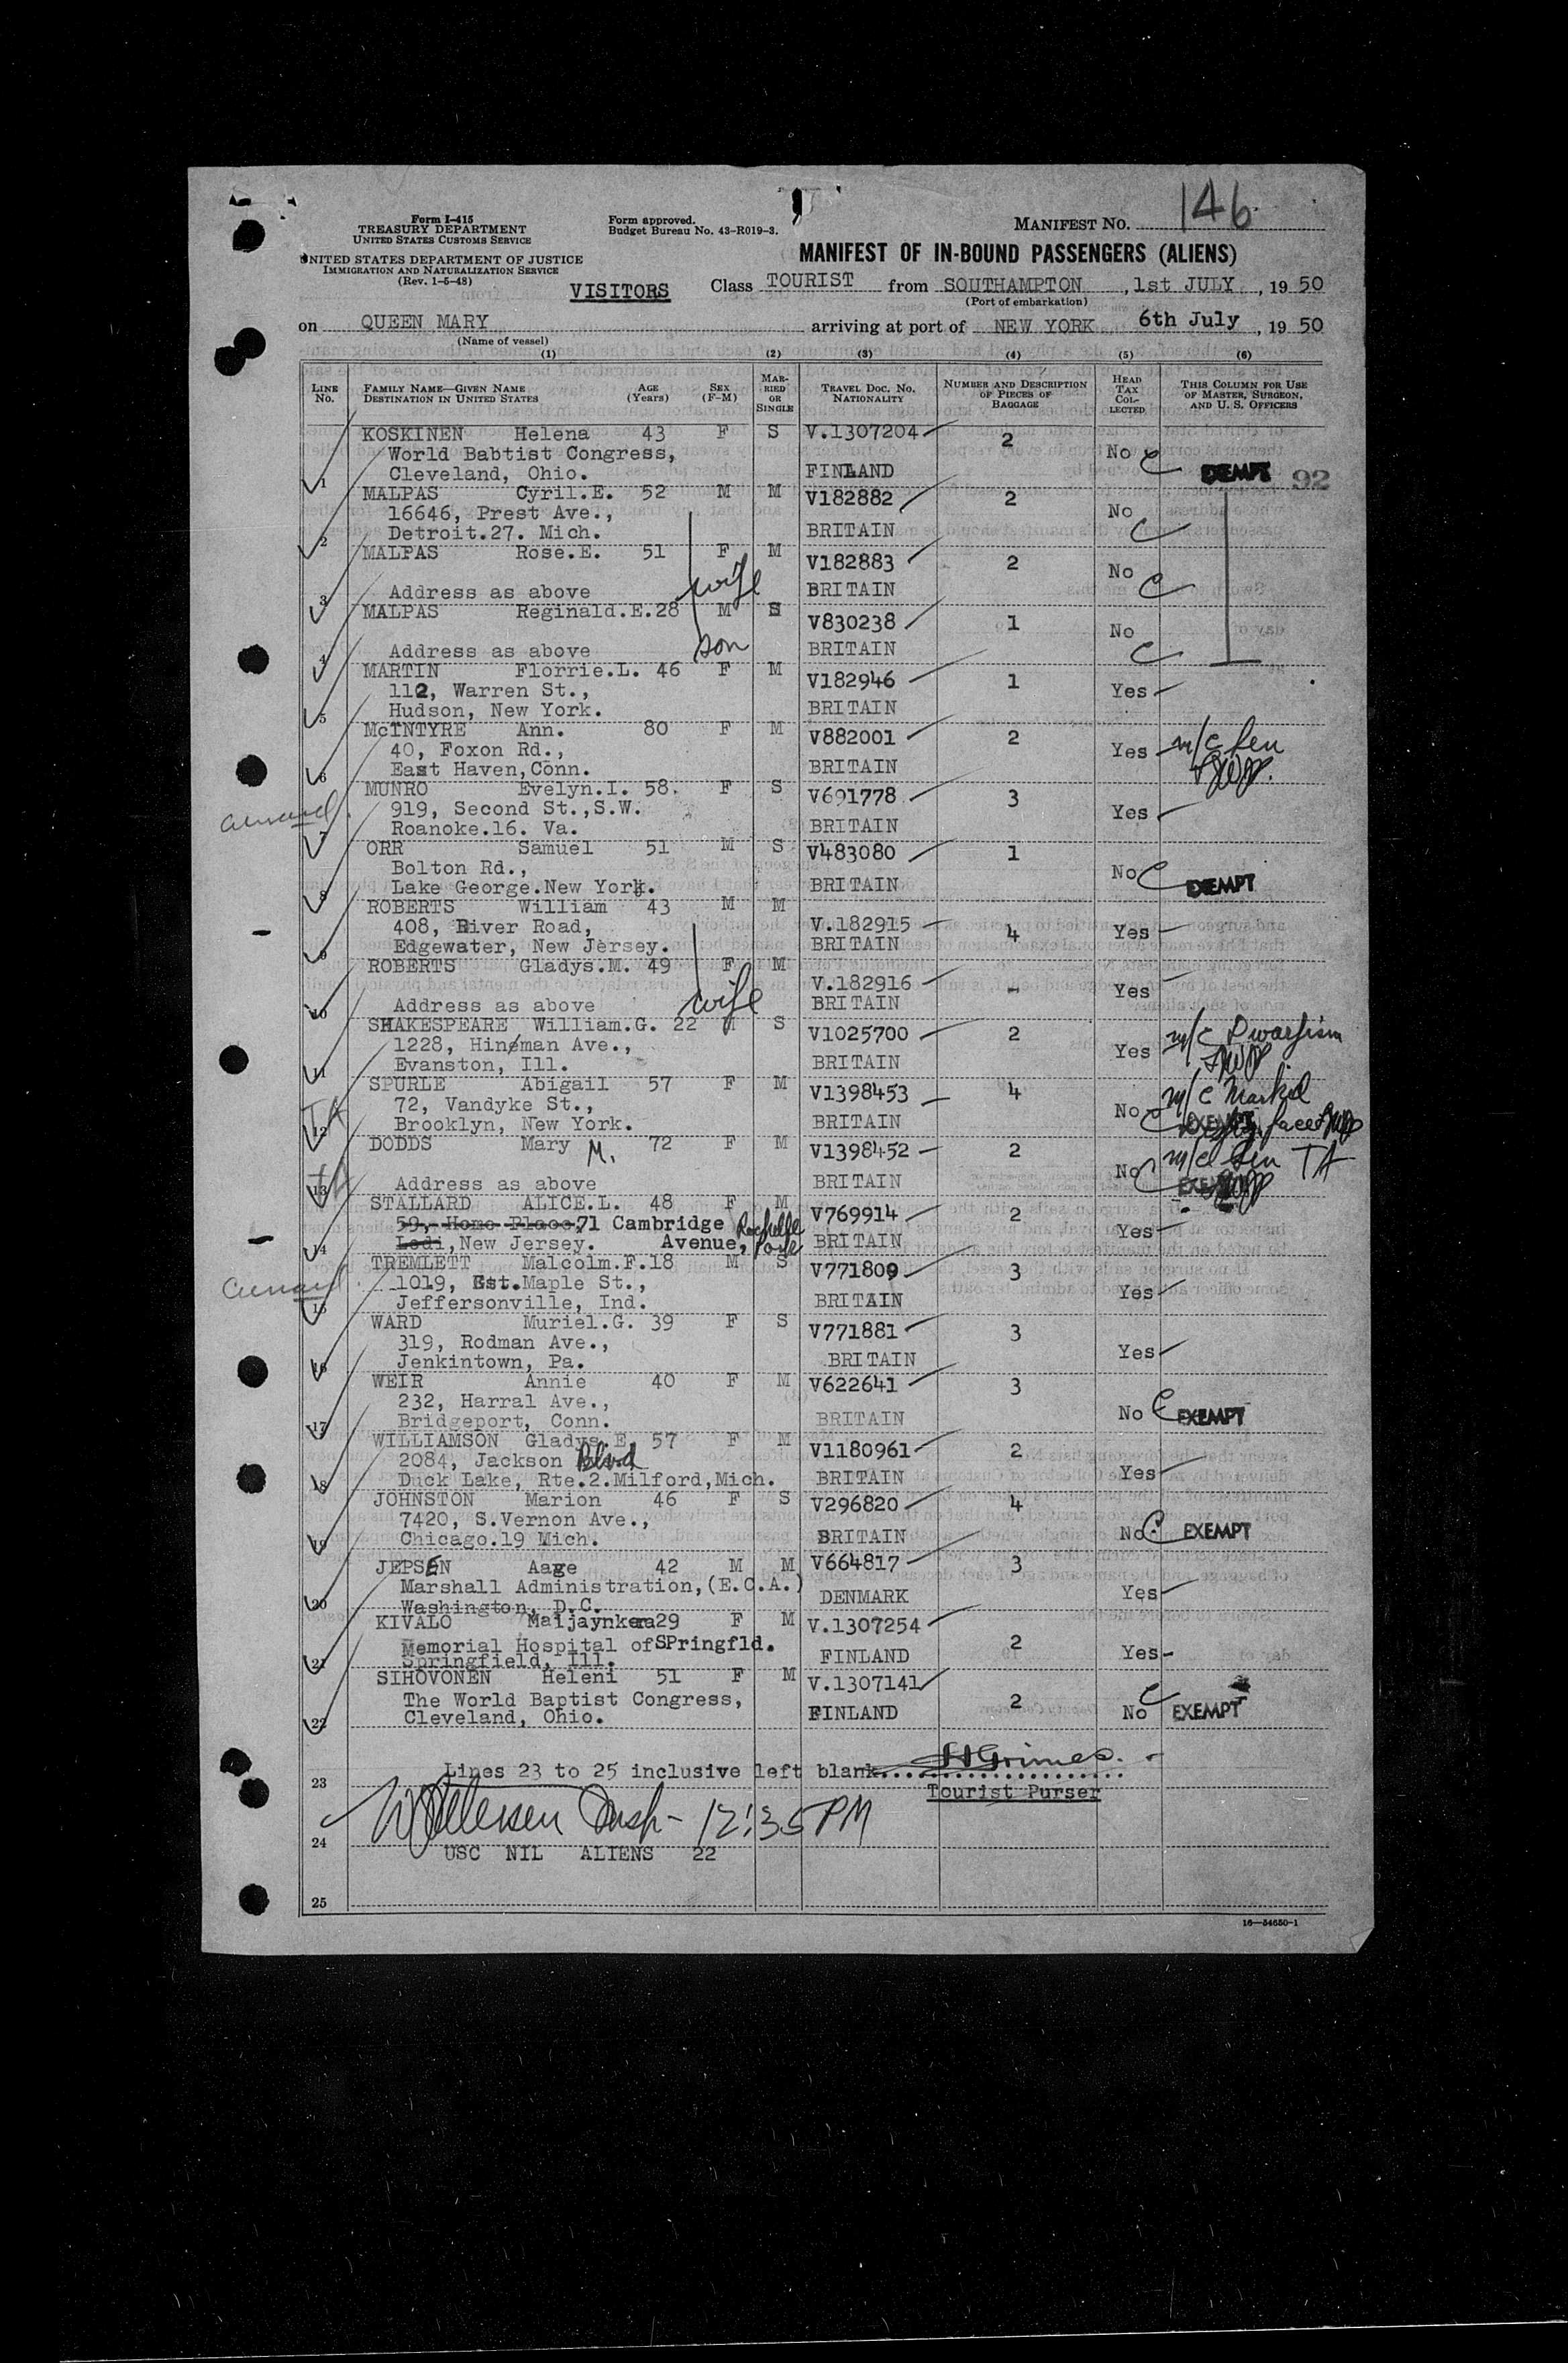 146
Form I-415
TREASURY DEPARTMENT
UNITED STATES CUSTOMS SERVICE
UNITED STATES DEPARTMENT OF JUSTICE
IMMIGRATION AND NATURALIZATION SERVICE
(Rev. 1-5-48)
Form approved.
Budget Bureau No. 43-R019-3.
MANIFEST NO.
MANIFEST OF IN-BOUND PASSENGERS (ALIENS)
VISITORS Class TOURIST from SOUTHAMPTON, 1st JULY, 1950
(Port of embarkation)
on QUEEN MARY arriving at port of NEW YORK 6th July, 1950
(Name of vessel)
(1) (2) (3) (4) (5) (6)
LINE No. FAMILY NAME—GIVEN NAME DESTINATION IN UNITED STATES AGE (Years) SEX (F-M) MARRIED OR SINGLE TRAVEL DOC. NO. NATIONALITY NUMBER AND DESCRIPTION OF PIECES OF BAGGAGE HEAD TAX COLLECTED THIS COLUMN FOR USE OF MASTER, SURGEON, AND U. S. OFFICERS
KOSKINEN Helena 43 F S V.1307204 2
World Babtist Congress, No C
1 Cleveland, Ohio. FINLAND EXEMPT 92
MALPAS Cyril.E. 52 M M V182882 2
16646, Prest Ave., No
2 Detroit.27. Mich. BRITAIN C
MALPAS Rose.E. 51 F M V182883 2
No
3 Address as above wife BRITAIN C
MALPAS Reginald.E.28 M S V830238 1
No
4 Address as above son BRITAIN C
MARTIN Florrie.L. 46 F M V182946 1
112, Warren St., Yes
5 Hudson, New York. BRITAIN
McINTYRE Ann. 80 F M V882001 2
40, Foxon Rd., Yes m/c Sen
6 East Haven,Conn. BRITAIN
MUNRO Evelyn.I. 58. F S V691778 3
Cunard 919, Second St.,S.W. Yes
7 Roanoke.16. Va. BRITAIN
ORR Samuel 51 M S V483080 1
Bolton Rd., No C
8 Lake George.New York. BRITAIN EXEMPT
ROBERTS William 43 M M V.182915 4
408, River Road, Yes
9 Edgewater, New Jersey. BRITAIN
ROBERTS Gladys.M. 49 F M V.182916 -
Yes
10 Address as above wife BRITAIN
SHAKESPEARE William.G. 22 M S V1025700 2
1228, Hinman Ave., Yes m/c Dwarfism
11 Evanston, Ill. BRITAIN
SPURLE Abigail 57 F M V1398453 4 m/c Marked
TA 72, Vandyke St., No C
12 Brooklyn, New York. BRITAIN EXEMPT
DODDS Mary M. 72 F M V1398452 2 m/c Sen TA
TA No C
13 Address as above BRITAIN EXEMPT
STALLARD ALICE.L. 48 F M V769914 2
59, Home Place,71 Cambridge Rochelle Yes
14 Lodi,New Jersey. Avenue, Park BRITAIN
TREMLETT Malcolm.F.18 M S V771809 3
Cunard 1019, Est.Maple St., Yes
15 Jeffersonville, Ind. BRITAIN
WARD Muriel.G. 39 F S V771881 3
319, Rodman Ave., Yes
16 Jenkintown, Pa. BRITAIN
WEIR Annie 40 F M V622641 3
232, Harral Ave., No C EXEMPT
17 Bridgeport, Conn. BRITAIN
WILLIAMSON Gladys.E. 57 F M V1180961 2
2084, Jackson Blvd Yes
18 Duck Lake, Rte.2.Milford,Mich. BRITAIN
JOHNSTON Marion 46 F S V296820 4
7420, S.Vernon Ave., No C EXEMPT
19 Chicago.19 Mich. BRITAIN
JEPSEN Aage 42 M M V664817 3
Marshall Administration,(E.C.A.) Yes
20 Washington, D.C. DENMARK
KIVALO 29 F M V.1307254
Memorial Hospital ofSPringfld. 2 Yes
21 Springfield, Ill. FINLAND
SIHOVONEN Heleni 51 F M V.1307141
The World Baptist Congress, 2 C
22 Cleveland, Ohio. FINLAND No EXEMPT
23 Lines 23 to 25 inclusive left blank. HGrimes.
Tourist Purser
Insp- 12:35PM
24
USC NIL ALIENS 22
25
16—54650-1